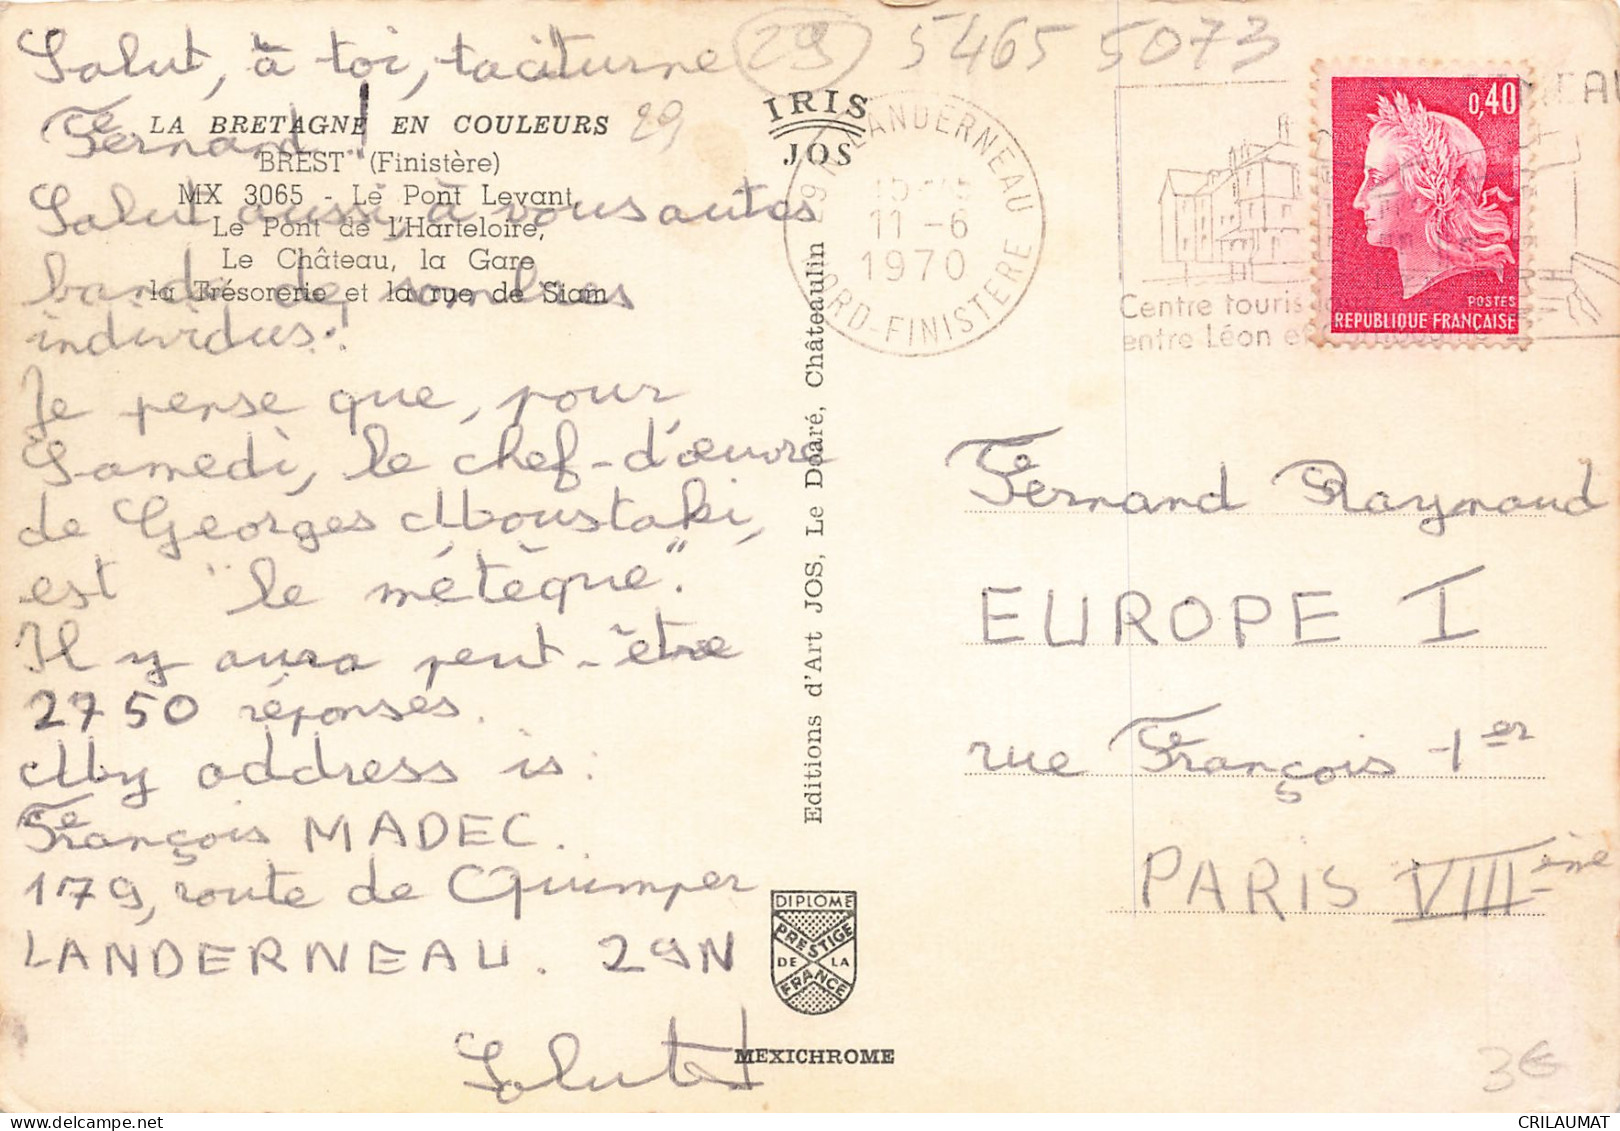 Salut, à toi, taciturne
Fernand !
Salut aussi, à vous autes
bande de sombres
individus !
Je pense que, pour
Samedi, le chef-d'œuvre
de Georges Moustaki,
est "le métèque".
Il y aura peut-être
2750 réponses.
My address is :
François MADEC.
179, route de Quimper
LANDERNEAU. 29N
Salut !
LA BRETAGNE EN COULEURS
BREST (Finistère)
MX 3065 - Le Pont Levant,
Le Pont de l'Harteloire,
Le Château, la Gare
la Trésorerie et la rue de Siam
29
29
5465 5073
IRIS
JOS
LANDERNEAU
11-6
1970
NORD-FINISTERE
Centre touris
entre Léon et
0,40
POSTES
REPUBLIQUE FRANÇAISE
Editions d'Art JOS, Le Doaré, Châteaulin
Fernand Raynaud
EUROPE I
rue François 1er
PARIS VIIIème
DIPLOME
PRESTIGE
DE LA
FRANCE
MEXICHROME
3€
CRILAUMAT